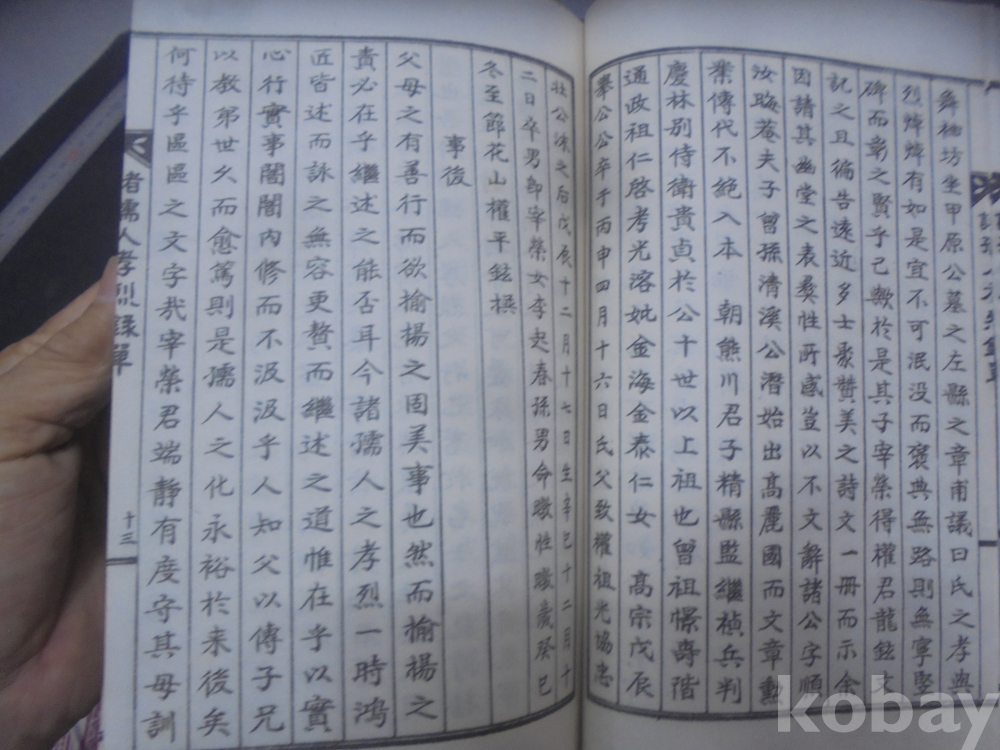 舞柚坊坐甲原公墓之左縣之章甫議曰氏之孝與
烈焯焯有如是宜不可泯没而褒典無路則無寧竪
碑而彰之賢乎已歟於是其子宰榮得權君龍鉉文
記之且徧告遠近多士裒贊美之詩文一冊而示余
因請其幽堂之表彜性所感豈以不文辭諸公字順
汝晦菴夫子曾孫清溪公潛始出高麗國而文章勳
業傳代不絶入本 朝熊川君子精縣監繼禎兵判
慶林别侍衛貴貞於公十世以上祖也曾祖憬壽階
通政祖仁啓考光溶妣金海金泰仁女 高宗戊辰
擧公公卒于丙申四月十六日氏父致權祖光協忠
壯公洙之后戊辰十二月十七日生辛巳十二月十
二日卒男卽宰榮女李起春孫男命暾性暾歲癸巳
冬至節花山權平鉉撰
事後
父母之有善行而欲揄楊之固美事也然而揄楊之
責必在乎繼述之能否耳今諸孺人之孝烈一時鴻
匠皆述而詠之無容更贅而繼述之道惟在乎以實
心行實事闇闇内修而不汲汲乎人知父以傳子兄
以教弟世乆而愈篤則是孺人之化永裕於来後矣
何待乎區區之文字㢤宰榮君端靜有度守其母訓
諸孺人孝烈錄單
十三
kobay